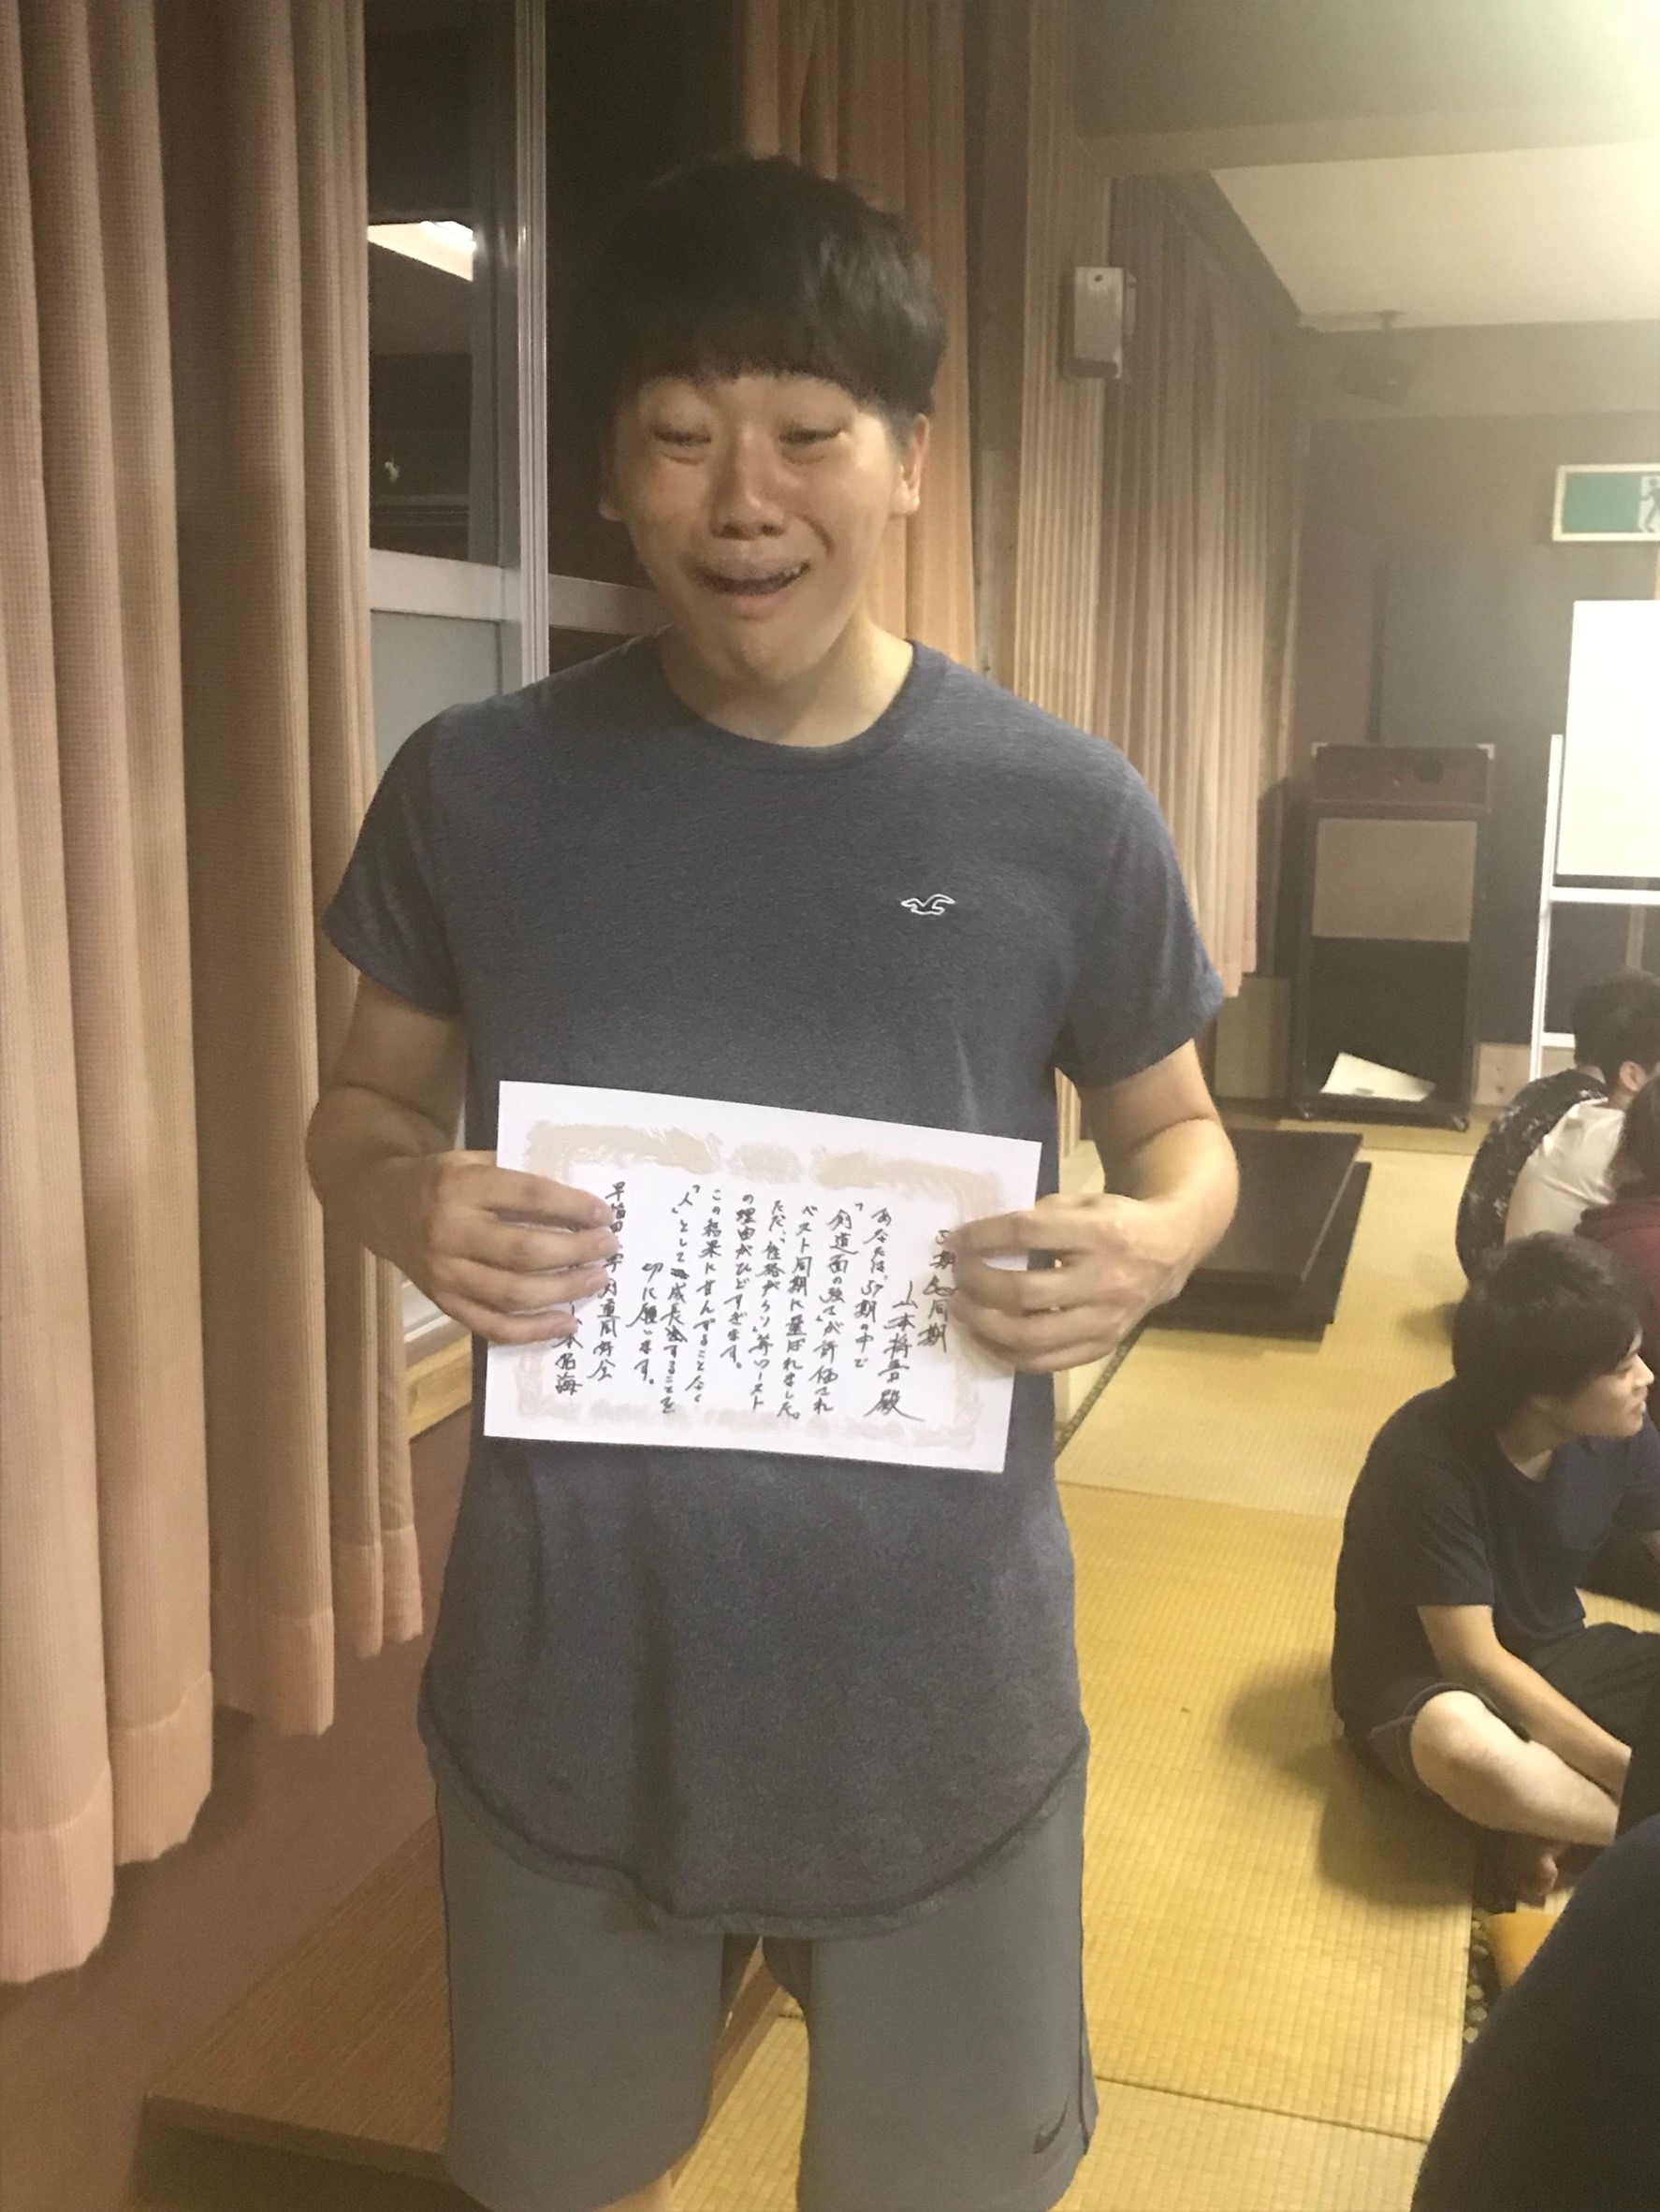 期Best同期
山本将貴 殿
あなたは、57期の中で
「剣道面の強さ」が評価され
ベスト同期に選ばれました。
ただ、「性格がクソ」等ワースト
の理由がひどすぎます。
この結果に甘んずることなく
「人」として成長することを
切に願います。
早稲田 学 道同好会